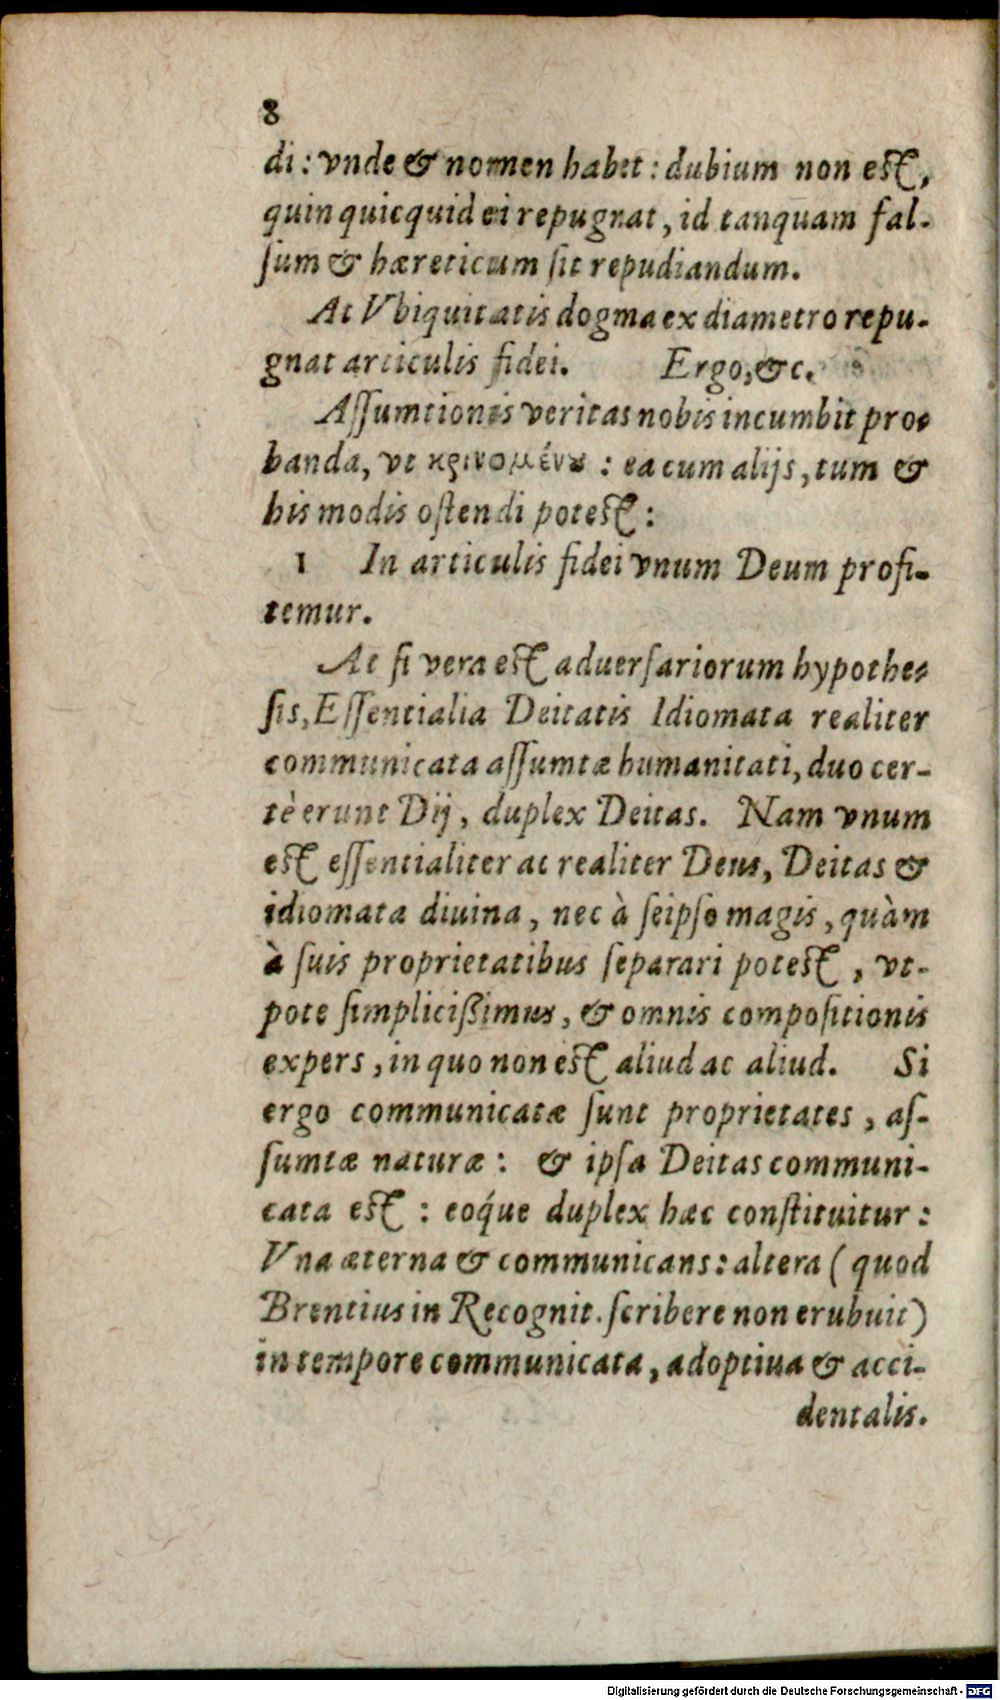 8
di: vnde & nomen habet: dubium non est,
quin quicquid ei repugnat, id tanquam fal-
ſum & hæreticum ſit repudiandum.
At Vbiquitatis dogma ex diametro repu-
gnat articulis fidei. Ergo, &c.
Aſſumtionis veritas nobis incumbit pro-
banda, vt κρινομένȣ: ea cum alijs, tum &
his modis oſtendi potest:
1 In articulis fidei vnum Deum profi-
temur.
At ſi vera est aduerſariorum hypothe-
ſis, Eſſentialia Deitatis Idiomata realiter
communicata aſſumtæ humanitati, duo cer-
tè erunt Dij, duplex Deitas. Nam vnum
est eſſentialiter ac realiter Deus, Deitas &
idiomata diuina, nec à ſeipſo magis, quàm
à ſuis proprietatibus ſeparari potest, vt-
pote ſimpliciſſimus, & omnis compoſitionis
expers, in quo non est aliud ac aliud. Si
ergo communicatæ ſunt proprietates, aſ-
ſumtæ naturæ: & ipſa Deitas communi-
cata est: eoq́ue duplex hæc conſtituitur:
Vna æterna & communicans: altera (quod
Brentius in Recognit. ſcribere non erubuit)
in tempore communicata, adoptiua & acci-
dentalis.
Digitalisierung gefördert durch die Deutsche Forschungsgemeinschaft - DFG